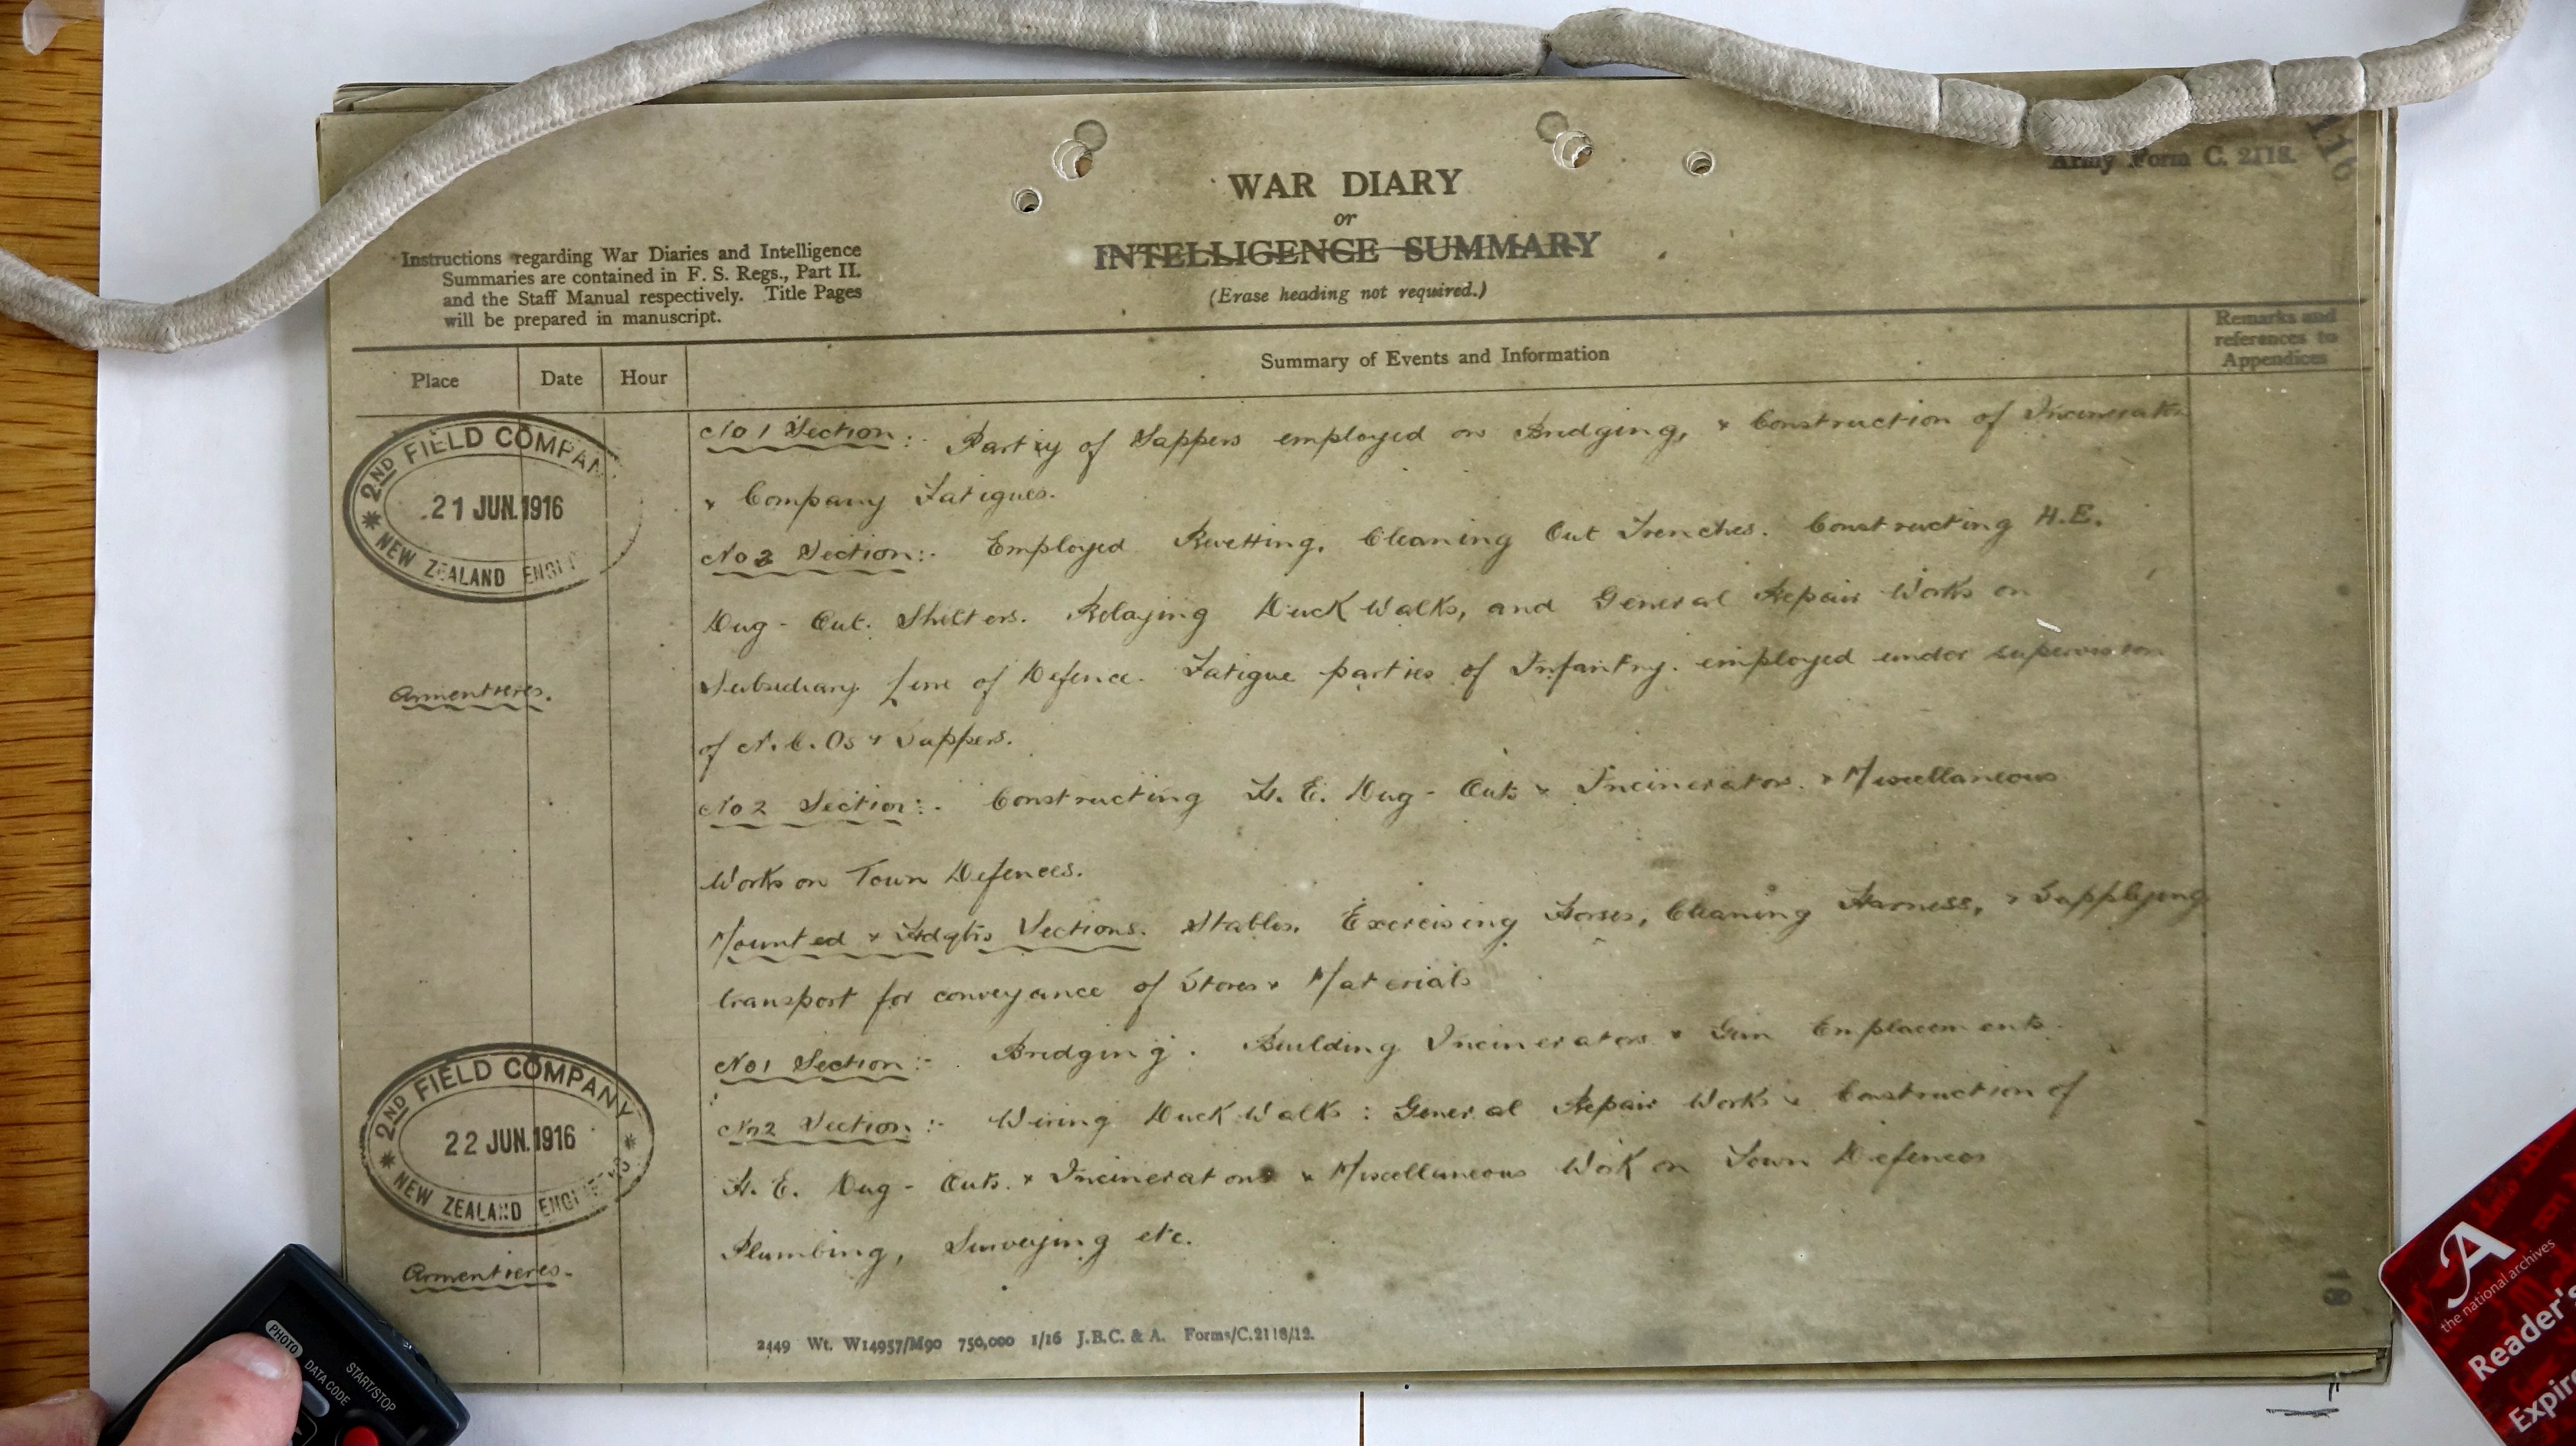 Army Form C. 2118.
WAR DIARY
or
INTELLIGENCE SUMMARY
(Erase heading not required.)
Instructions regarding War Diaries and Intelligence
Summaries are contained in F. S. Regs., Part II.
and the Staff Manual respectively. Title Pages
will be prepared in manuscript.
Place
Date
Hour
Summary of Events and Information
Remarks and
references to
Appendices
2ND FIELD COMPAN
21 JUN. 1916
NEW ZEALAND ENGI
Armentieres.
No 1 Section:- Party of Sappers employed on Bridging, & Construction of Incinerator
& Company Fatigues.
No 2 Section:- Employed Revetting, Cleaning Out Trenches. Constructing H.E.
Dug-Out Shelters. Relaying Duck Walks, and General Repair Works on
Subsidiary Line of Defence. Fatigue parties of Infantry employed under supervision
of N.C.Os & Sappers.
No 2 Section:- Constructing H.E. Dug-Outs & Incinerators. & Miscellaneous
Works on Town Defences.
Mounted & Hdqtrs Sections. Stables. Exercising Horses, Cleaning Harness, & Supplying
transport for conveyance of Stores & Materials
2ND FIELD COMPANY
22 JUN. 1916
NEW ZEALAND ENGINEERS
Armentieres.
No 1 Section:- Bridging. Building Incinerators & Gun Emplacements.
No 2 Section:- Wiring Duck Walks: General Repair Works & Construction of
H.E. Dug-Outs. & Incinerators & Miscellaneous Work on Town Defences
Plumbing, Surveying etc.
2449 Wt. W14957/M90 750,000 1/16 J.B.C. & A. Forms/C.2118/12.
18
PHOTO
DATA CODE
START/STOP
the national archives
Reader's
Expire